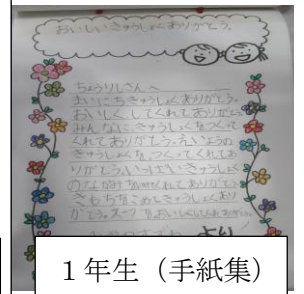 おいしいきゅうしょくありがとう。
ちょうりしさんへ
まいにちきゅうしょくありがとう。
おいしくしてくれてありがとう。
みんなにきゅうしょくをつくって
くれてありがとう。えいようの
きゅうしょくをつくってくれてあ
りがとう。いっぱいきゅうしょく
くれてありがとう。
きもちをこめてきゅうしょくあり
がとう。
より
1年生（手紙集）